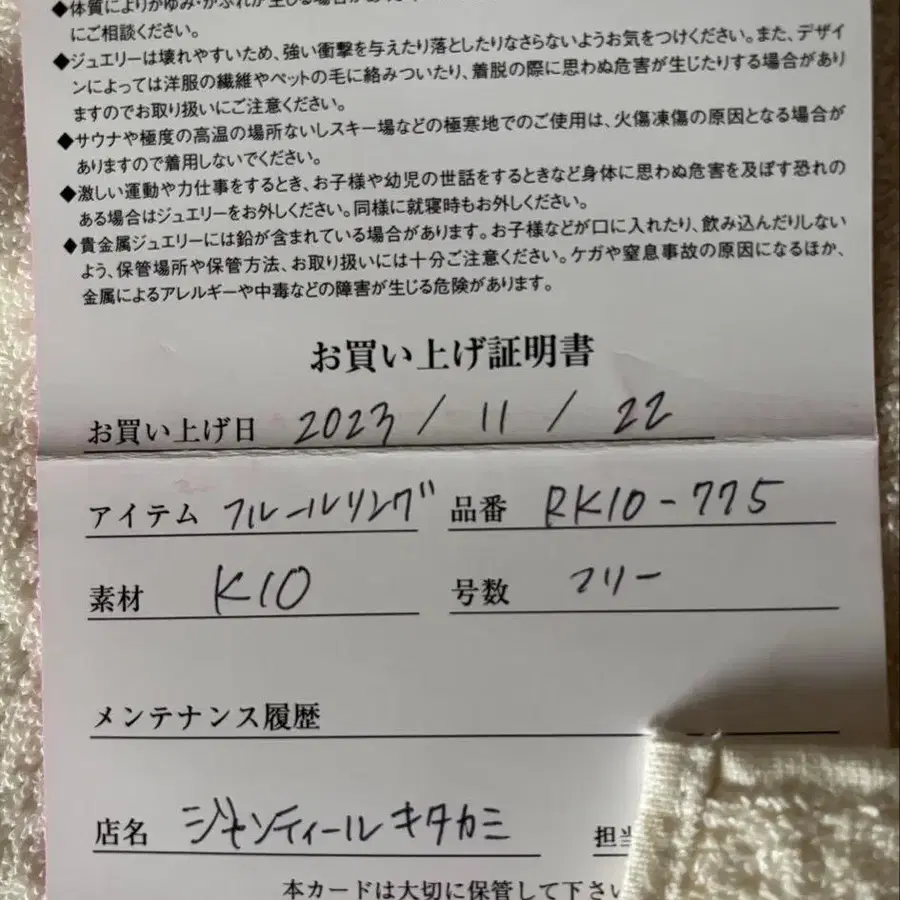 ◆体質によりかゆみ・かぶれが生じる場合が
にご相談ください。
◆ジュエリーは壊れやすいため、強い衝撃を与えたり落としたりなさらないようお気をつけください。また、デザイ
ンによっては洋服の繊維やペットの毛に絡みついたり、着脱の際に思わぬ危害が生じたりする場合があり
ますのでお取り扱いにご注意ください。
◆サウナや極度の高温の場所ないしスキー場などの極寒地でのご使用は、火傷凍傷の原因となる場合が
ありますので着用しないでください。
◆激しい運動や力仕事をするとき、お子様や幼児の世話をするときなど身体に思わぬ危害を及ぼす恐れの
ある場合はジュエリーをお外しください。同様に就寝時もお外しください。
◆貴金属ジュエリーには鉛が含まれている場合があります。お子様などが口に入れたり、飲み込んだりしない
よう、保管場所や保管方法、お取り扱いには十分ご注意ください。ケガや窒息事故の原因になるほか、
金属によるアレルギーや中毒などの障害が生じる危険があります。
お買い上げ証明書
お買い上げ日 2023 / 11 / 22
アイテム フルールリング 品番 RK10-775
素材 K10 号数 フリー
メンテナンス履歴
店名 ジャンティールキタカミ 担当
本カードは大切に保管して下さい